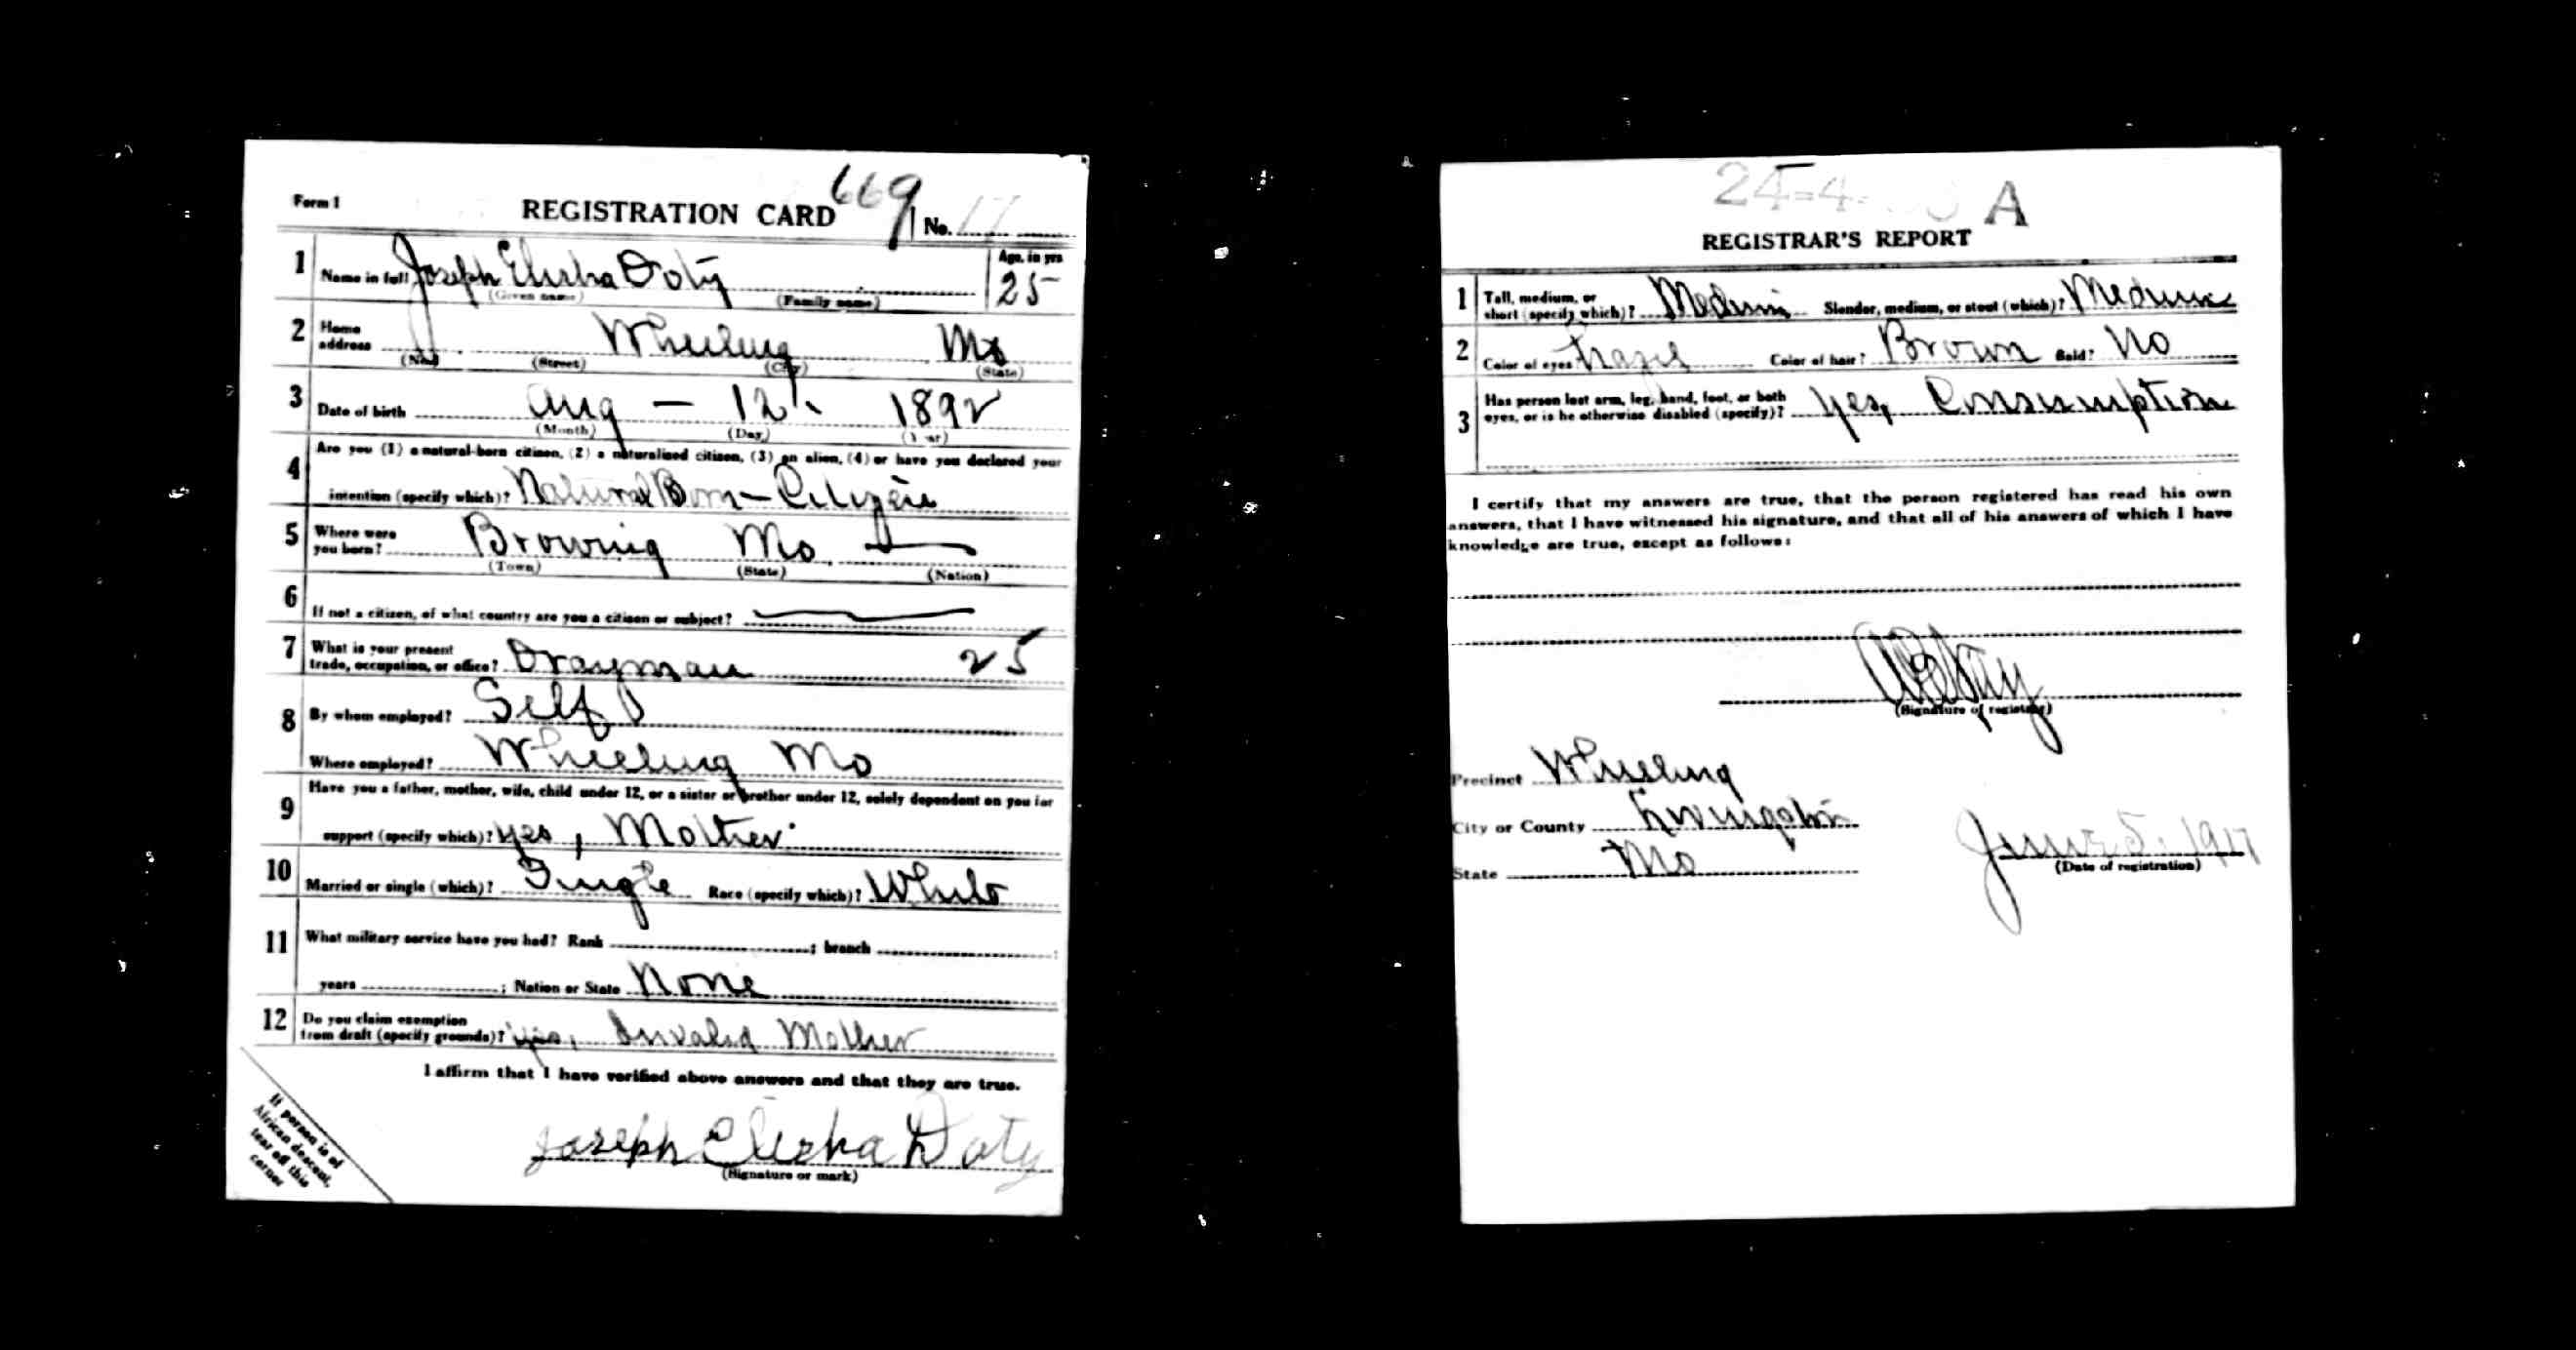 669
Form 1 REGISTRATION CARD No. 17
1 Name in full Joseph Elisha Doty Age, in yrs 25
(Given name) (Family name)
2 Home address Wheeling Mo
(No.) (Street) (City) (State)
3 Date of birth Aug — 12 1892
(Month) (Day) (Year)
4 Are you (1) a natural-born citizen, (2) a naturalized citizen, (3) an alien, (4) or have you declared your
intention (specify which)? Natural Born – Citizen
5 Where were you born? Browning Mo
(Town) (State) (Nation)
6 If not a citizen, of what country are you a citizen or subject?
7 What is your present trade, occupation, or office? Drayman 25
8 By whom employed? Self
Where employed? Wheeling Mo
9 Have you a father, mother, wife, child under 12, or a sister or brother under 12, solely dependent on you for
support (specify which)? Yes, Mother
10 Married or single (which)? Single Race (specify which)? White
11 What military service have you had? Rank ; branch ;
years ; Nation or State None
12 Do you claim exemption from draft (specify grounds)? Yes, Invalid Mother
I affirm that I have verified above answers and that they are true.
Joseph Elisha Doty
(Signature or mark)
If person is of
African descent,
tear off this
corner
A
REGISTRAR'S REPORT
1 Tall, medium, or short (specify which)? Medium Slender, medium, or stout (which)? Medium
2 Color of eyes Hazel Color of hair? Brown Bald? No
3 Has person lost arm, leg, hand, foot, or both eyes, or is he otherwise disabled (specify)? Yes, Consumption
I certify that my answers are true, that the person registered has read his own
answers, that I have witnessed his signature, and that all of his answers of which I have
knowledge are true, except as follows:
(Signature of registrar)
Precinct Wheeling
City or County Livingston
State Mo
June 5, 1917
(Date of registration)